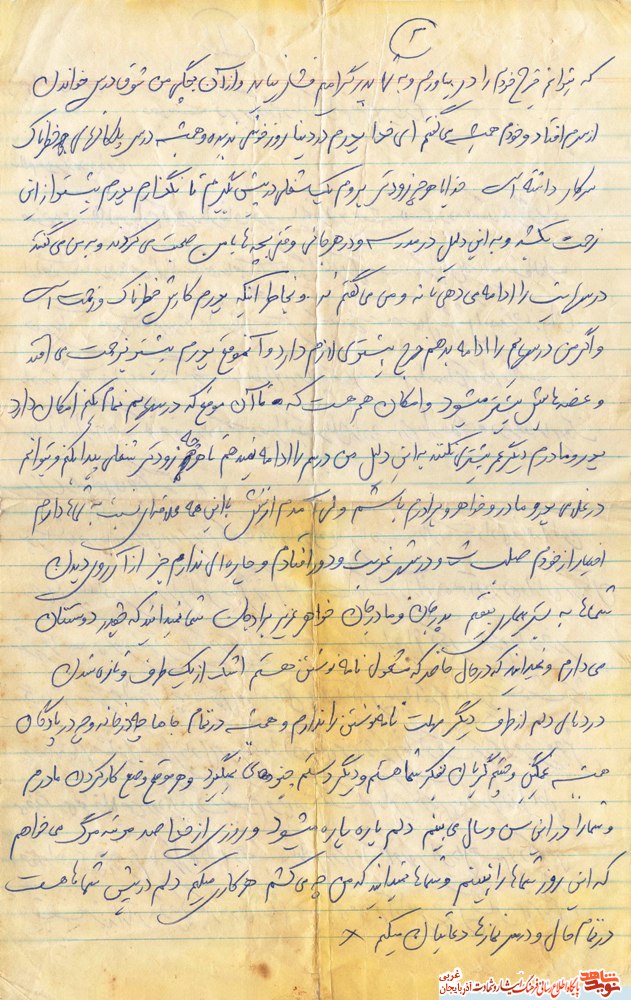 ۲
که بتوانم خرج خودم را در بیاورم و به پدر گرامیم فشار نیاید و از آن بچگی من شوق درس خواندن
از سرم افتاد و خودم همیشه می گفتم ای خدا پدرم در دنیا روز خوشی ندیده و همیشه در س خطرناک
سر کار داشته است خدایا هر چه زودتر بروم یک شغلی در پیش بگیرم تا نگذارم پدرم بیشتر از این
زحمت بکشد و به این دلیل در مدرسه و در هر جائی وقتی بچه ها با من صحبت می کردند و به من می گفتند
درسهایت را ادامه می دهی یا نه و من می گفتم نه بخاطر اینکه پدرم کارش خطرناک و زحمت است
و اگر من درسهایم را ادامه بدهم خرج بیشتری لازم دارد و آنموقع پدرم بیشتر به زحمت می افتد
و غصه هایش بیشتر میشود و امکان هم هست که تا آن موقع که درسهایم تمام بکنم امکان دارد
پدر و مادرم دیگر عمر بیشتری نکنند به این دلیل من درسم را ادامه نمیدهم تا هر چه زودتر شغلی پیدا بکنم و بتوانم
در غلامی پدر و مادر و خواهر و برادرم باشم ولی با این همه علاقه ای نسبت به شماها دارم
اختیار از خودم سلب شد و در شهر غربت و دور افتادم و چاره ای ندارم جز از آرزوی دیدن
شماها به بیفتم پدر جان و مادر جان خواهر عزیز برادران شما نمیدانید که چقدر دوستتان
می دارم و نمیدانید که در حال حاضر که مشغول نامه نوشتن هستم اشک از یک طرف و تازه شدن
درد دل دلم از طرف دیگر مهلت نامه نوشتن را ندارم و همیشه در تمام جاها چه در خانه و چه در پادگان
همیشه غمگین و چشم گریان بفکر شما هستم و دیگر دستم چیزهای نمیگیرد و هر موقع وضع کار کردن مادرم
و شما را در این سن و سال می بینم دلم پاره پاره میشود و روزی از خدا صد مرتبه مرگ می خواهم
که این روز شماها را نبینم و شماها نمیدانید که من چه می کشم هر کاری میکنم دلم در پیش شماها هست
در تمام حال و در سر نمازها دعایتان میکنم ×
نوید شاهد
آذربایجان غربی
پایگاه اطلاع رسانی فرهنگ ایثار و شهادت